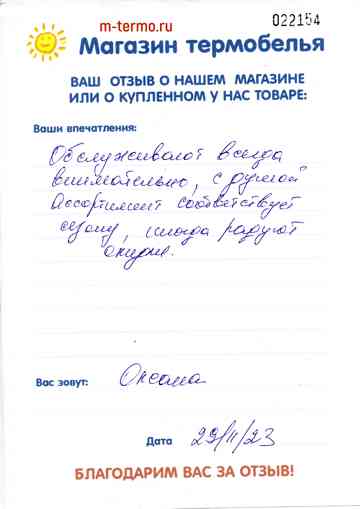 m-termo.ru
022154
Магазин термобелья
ВАШ ОТЗЫВ О НАШЕМ МАГАЗИНЕ
ИЛИ О КУПЛЕННОМ У НАС ТОВАРЕ:
Ваши впечатления:
Обслуживают всегда
внимательно, с душой
Ассортимент соответствует
сезону, иногда радуют
скидки.
Вас зовут: Оксана
Дата 29/11/23
БЛАГОДАРИМ ВАС ЗА ОТЗЫВ!